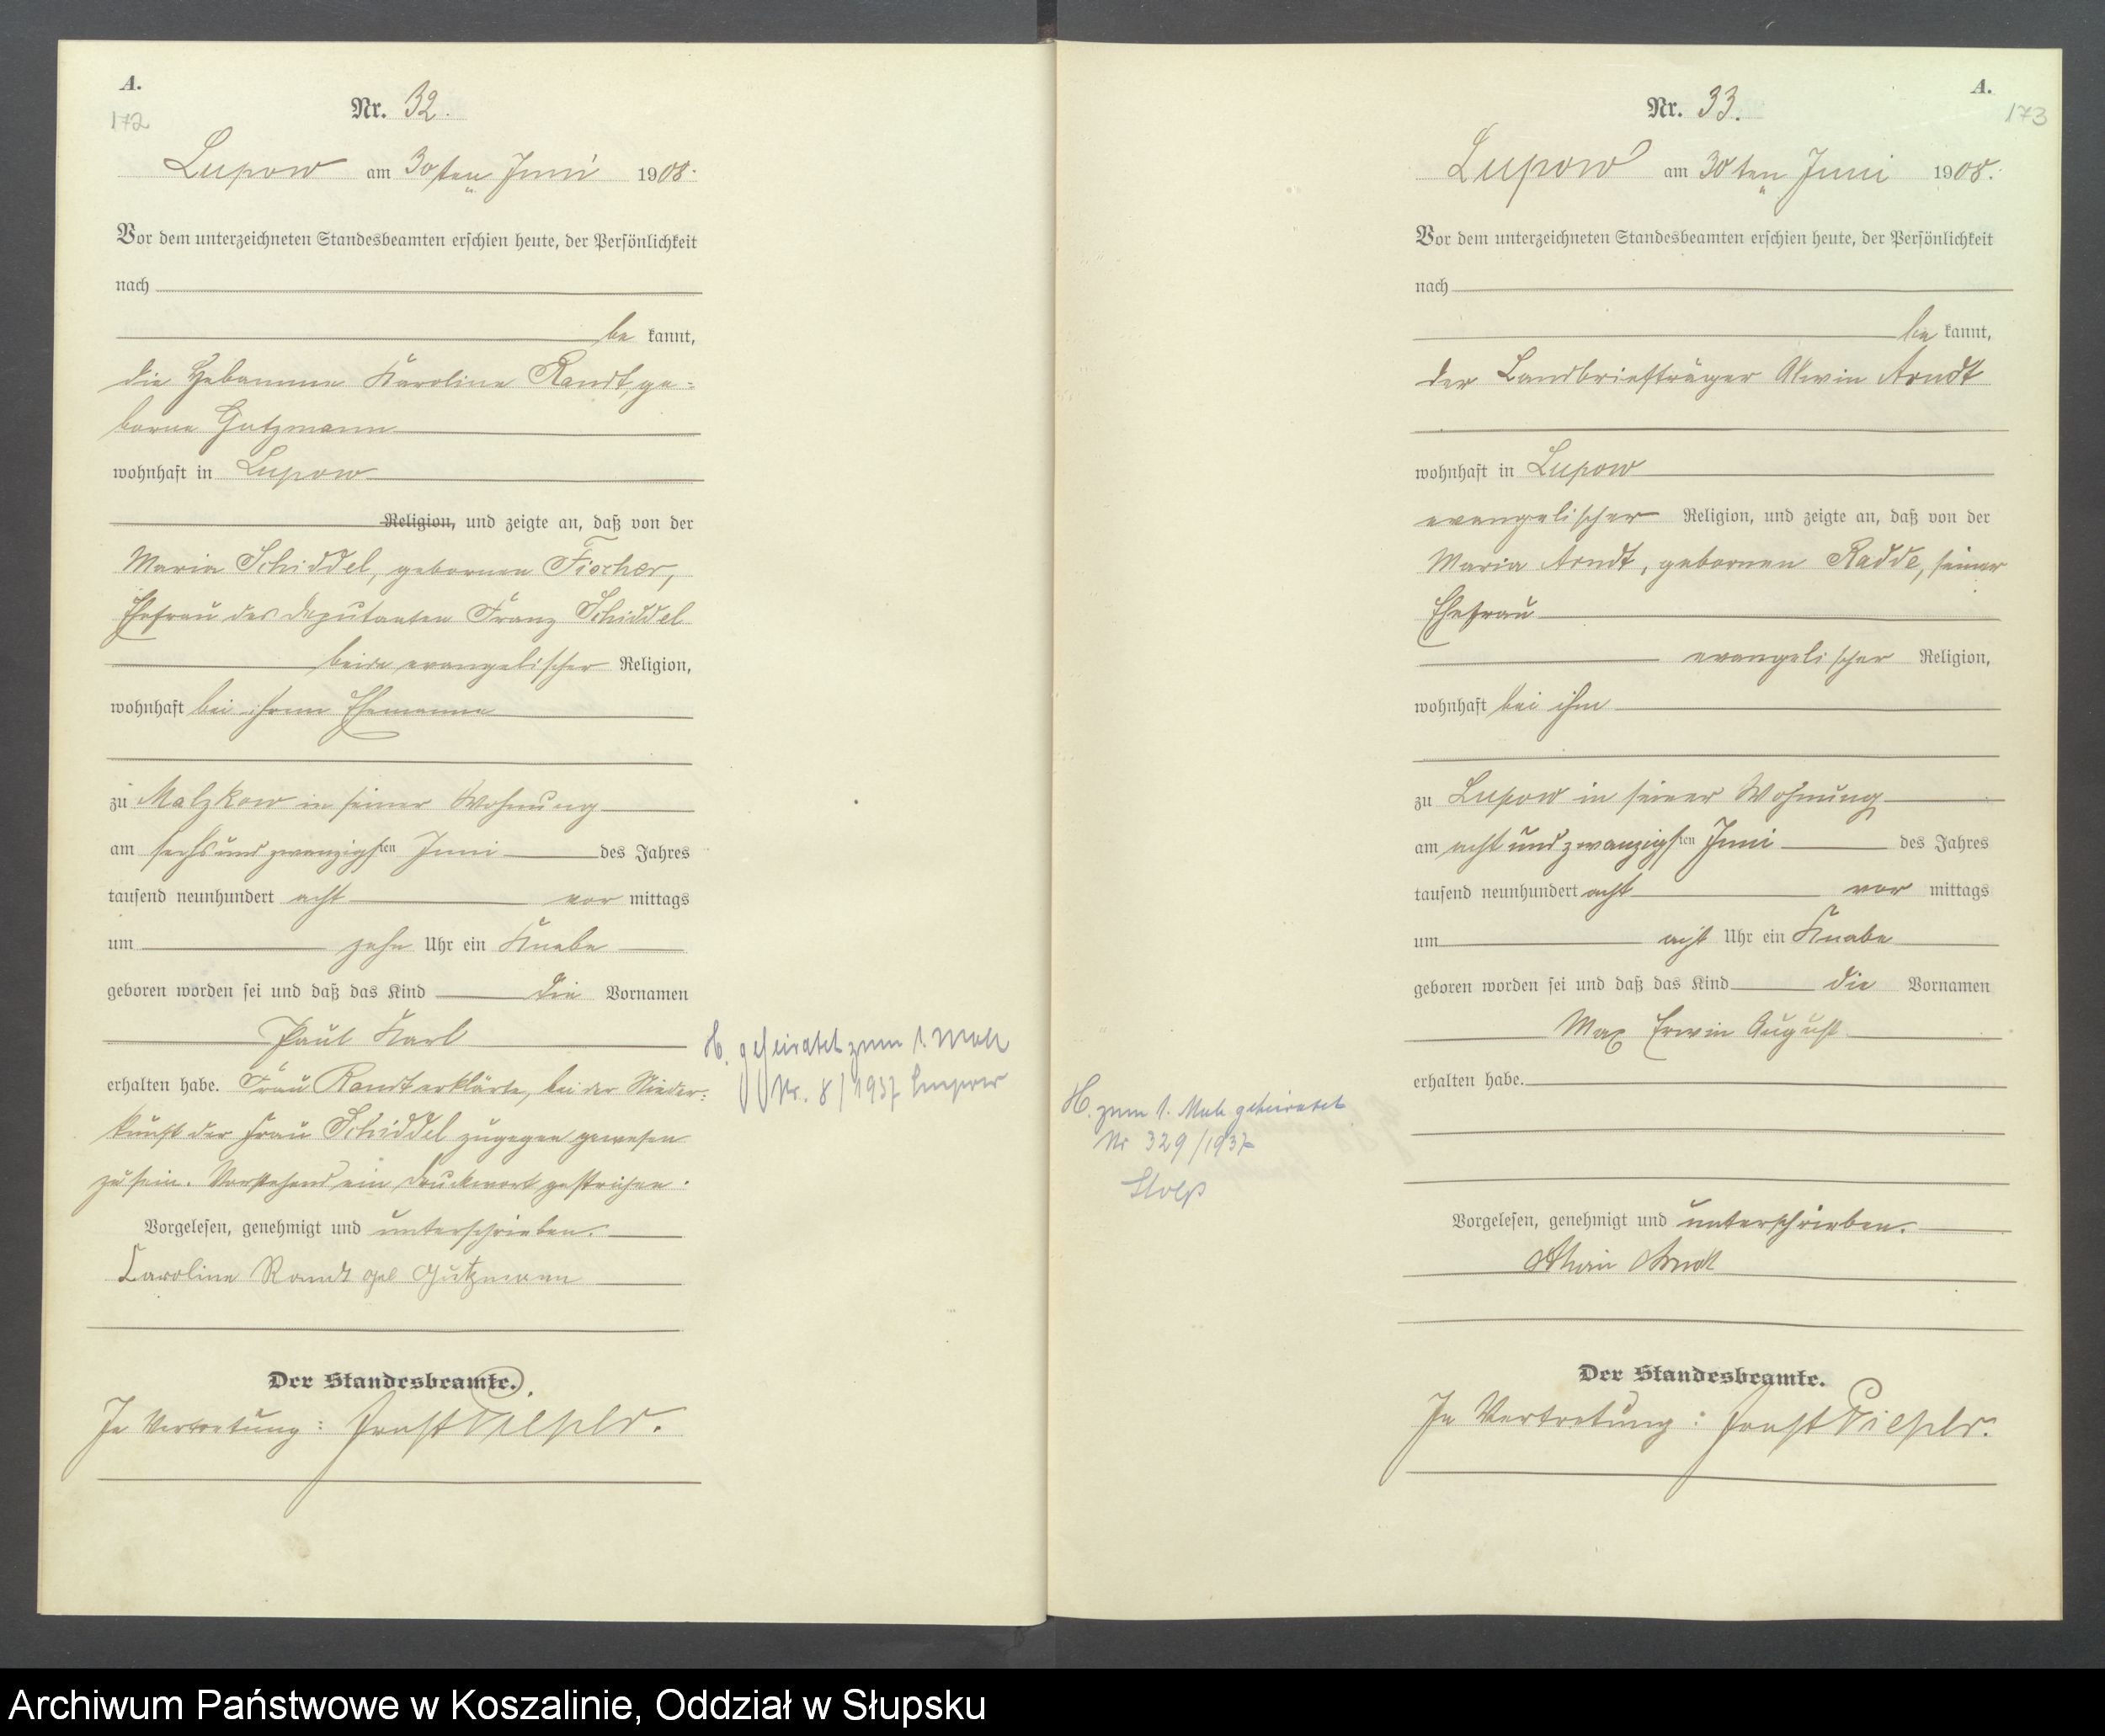 A.
172
Nr. 32.
Lupow am 30ten Juni 1908.
Vor dem unterzeichneten Standesbeamten erschien heute, der Persönlichkeit
nach
be kannt,
die Hebamme Karoline Randt, ge-
borne Gutzmann
wohnhaft in Lupow
Religion, und zeigte an, daß von der
Maria Schiddel, gebornen Fischer,
Ehefrau des Deputanten Franz Schiddel
beide evangelischer Religion,
wohnhaft bei ihrem Ehemanne
zu Malzkow in seiner Wohnung
am sechsundzwanzigsten Juni des Jahres
tausend neunhundert acht vor mittags
um zehn Uhr ein Knabe
geboren worden sei und daß das Kind die Vornamen
Paul Karl
erhalten habe. Frau Randt erklärte, bei der Nieder-
kunft der Frau Schiddel zugegen gewesen
zu sein. Vorstehend ein Druckwort gestrichen.
Vorgelesen, genehmigt und unterschrieben.
Caroline Randt geb Gutzmann
Der Standesbeamte.
In Vertretung: Ernst
H. geheiratet zum 1. Male
Nr. 8/1937 Lupow
A.
173
Nr. 33.
Lupow am 30ten Juni 1908.
Vor dem unterzeichneten Standesbeamten erschien heute, der Persönlichkeit
nach
be kannt,
der Landbriefträger Alwin Arndt
wohnhaft in Lupow
evangelischer Religion, und zeigte an, daß von der
Maria Arndt, gebornen Radde, seiner
Ehefrau
evangelischer Religion,
wohnhaft bei ihm
zu Lupow in seiner Wohnung
am achtundzwanzigsten Juni des Jahres
tausend neunhundert acht vor mittags
um acht Uhr ein Knabe
geboren worden sei und daß das Kind die Vornamen
Max Erwin August
erhalten habe.
Vorgelesen, genehmigt und unterschrieben.
Alwin Arndt
Der Standesbeamte.
In Vertretung: Ernst
H. zum 1. Male geheiratet
Nr 329/1937
Stolp
Archiwum Państwowe w Koszalinie, Oddział w Słupsku